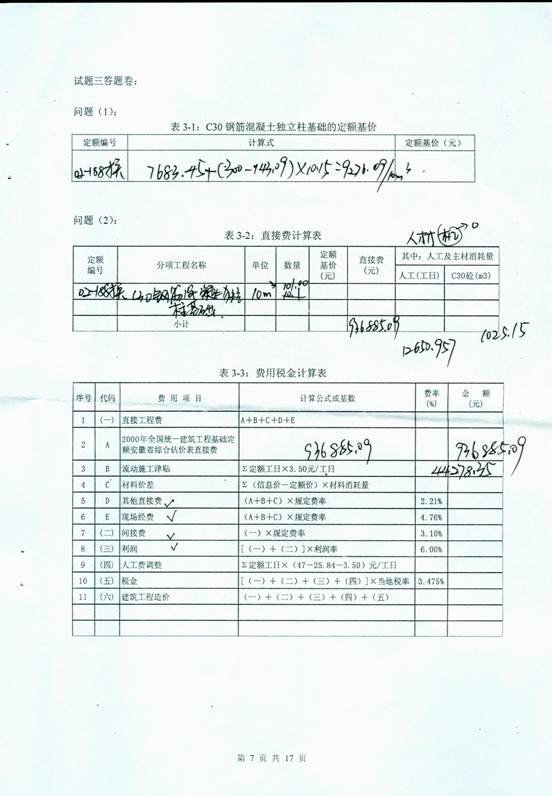 试题三答题卷：
问题（1）：
表 3-1：C30 钢筋混凝土独立柱基础的定额基价
定额编号 计算式 定额基价（元）
02-168换 7683.45+(300-143.09)×10.15=9276.09/10m³
问题（2）：
表 3-2：直接费计算表
定额编号 分项工程名称 单位 数量 定额基价(元) 直接费(元) 其中：人工及主材消耗量
人工(工日) C30砼(m3)
02-168换 C30钢筋混凝土 10m³ 101.00
柱基础
小计 936885.09
12650.957 1025.15
表 3-3：费用税金计算表
序号 代码 费 用 项 目 计算公式或基数 费率(%) 金 额(元)
1 (一) 直接工程费 A+B+C+D+E
2 A 2000年全国统一建筑工程基础定额安徽省综合估价表直接费 936885.09 936885.09
3 B 流动施工津贴 Σ定额工日×3.50元/工日 44278.35
4 C 材料价差 Σ（信息价－定额价）×材料消耗量
5 D 其他直接费 (A+B+C)×规定费率 2.21%
6 E 现场经费 (A+B+C)×规定费率 4.76%
7 (二) 间接费 (一)×规定费率 3.10%
8 (三) 利润 [(一)+(二)]×利润率 6.00%
9 (四) 人工费调整 Σ定额工日×(47-25.84-3.50)元/工日
10 (五) 税金 [(一)+(二)+(三)+(四)]×当地税率 3.475%
11 (六) 建筑工程造价 (一)+(二)+(三)+(四)+(五)
第 7 页 共 17 页